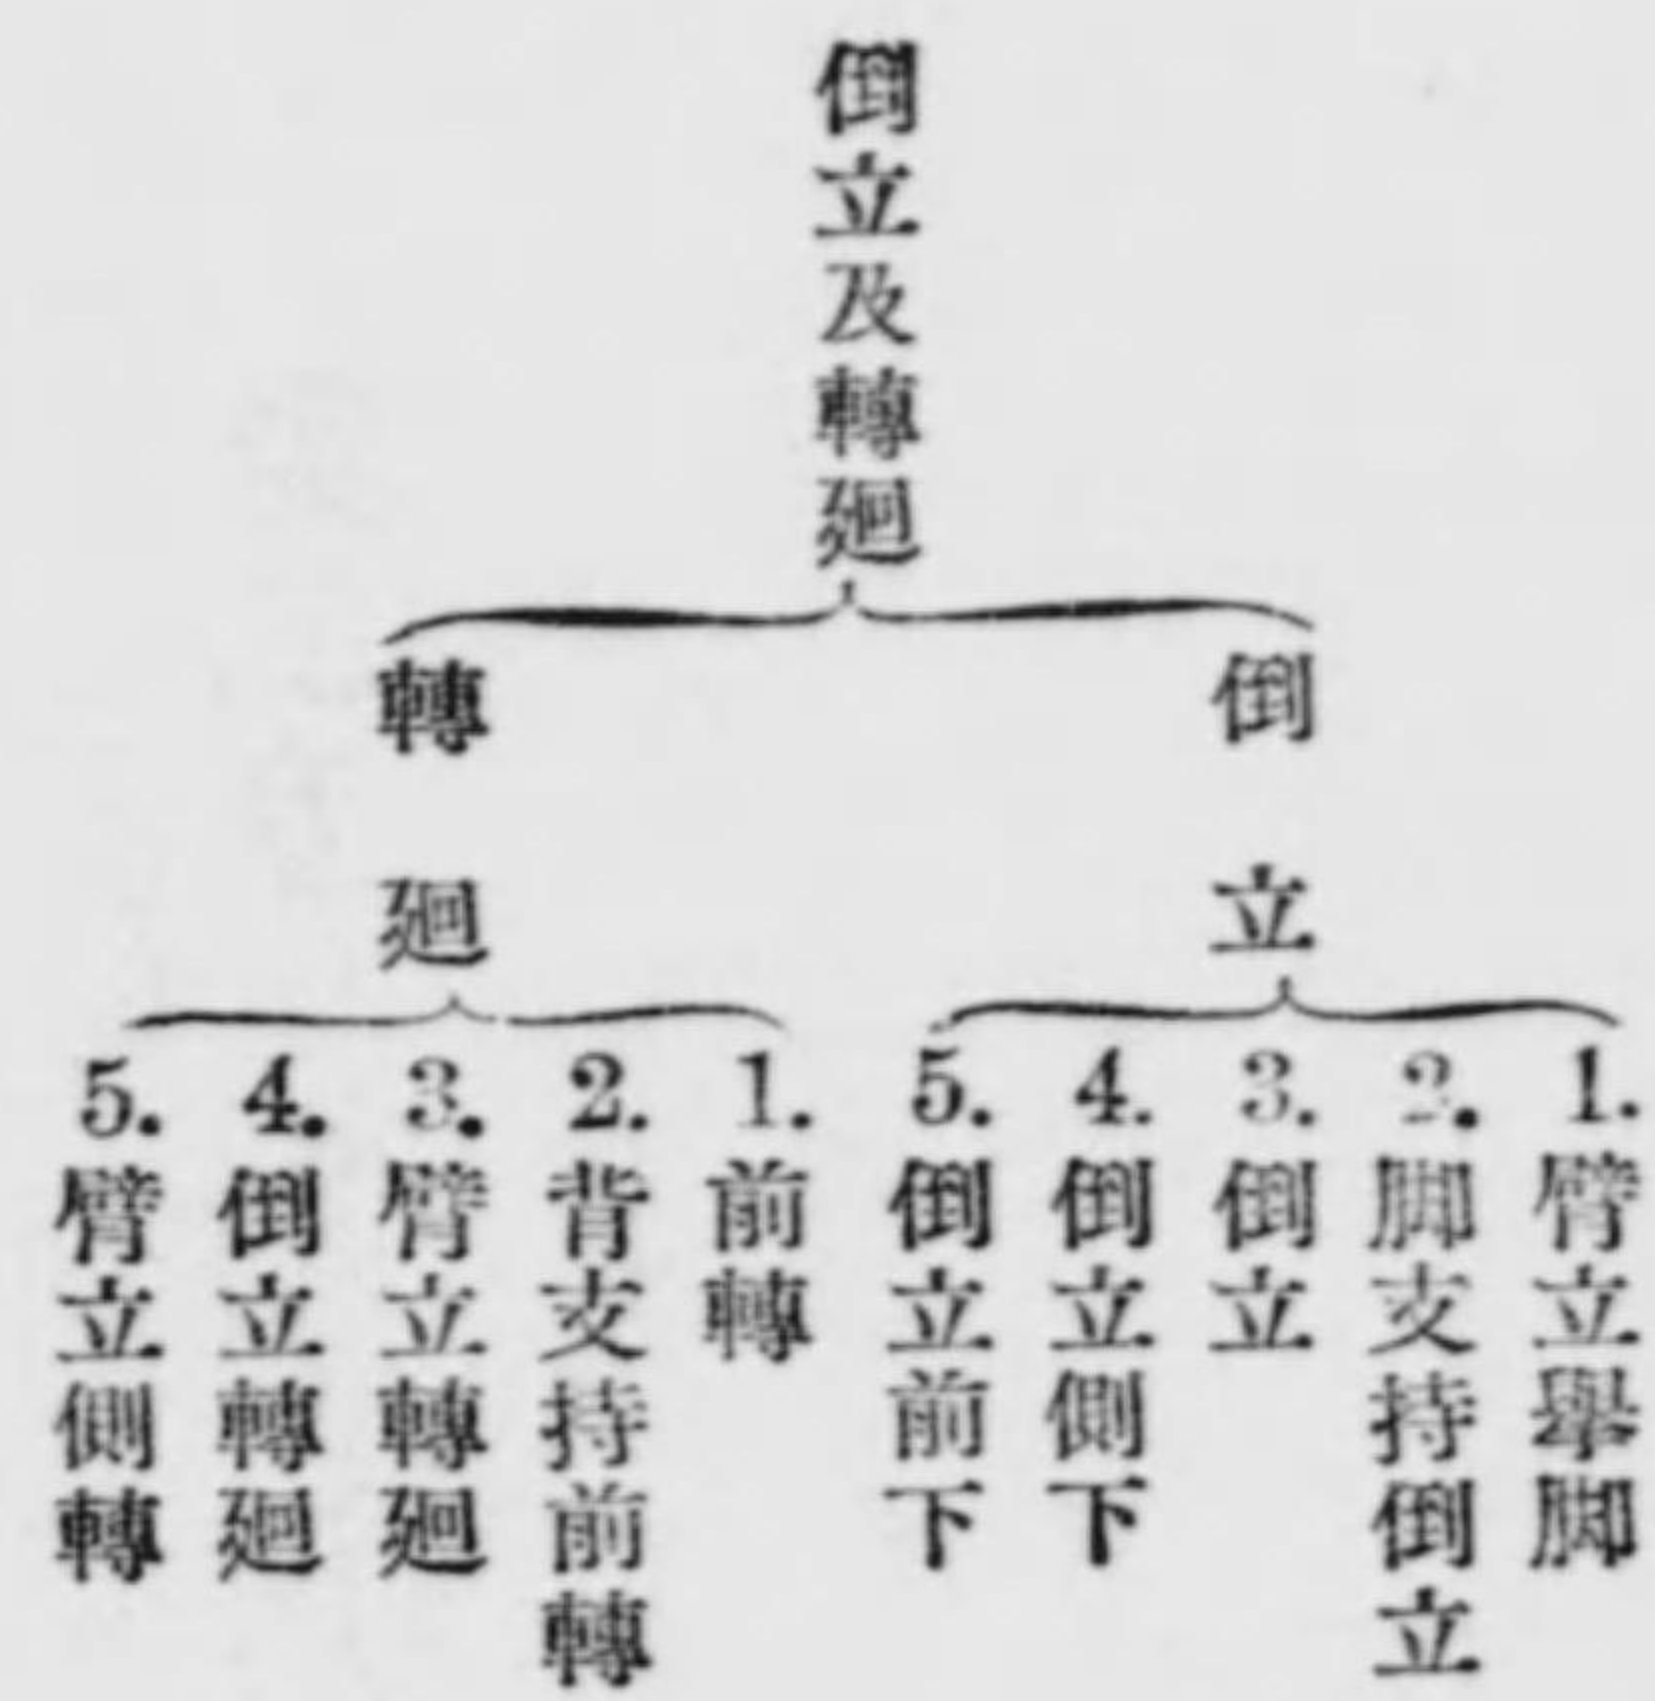 倒立及轉廻
倒立
1. 臂立舉脚
2. 脚支持倒立
3. 倒立
4. 倒立側下
5. 倒立前下
轉廻
1. 前轉
2. 背支持前轉
3. 臂立轉廻
4. 倒立轉廻
5. 臂立側轉